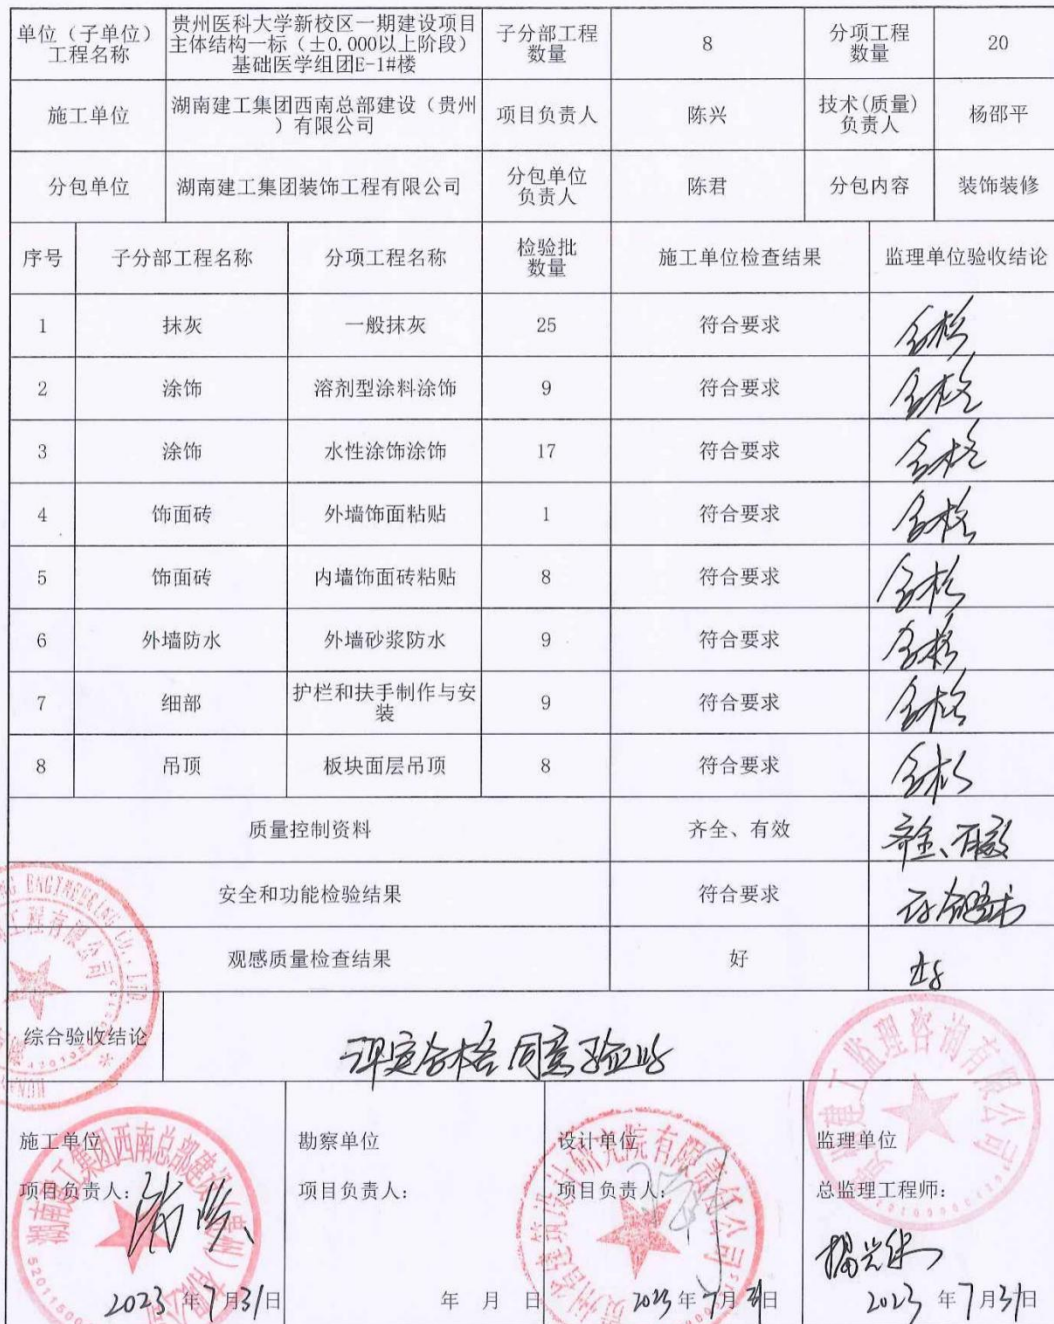 单位（子单位）工程名称 贵州医科大学新校区一期建设项目主体结构一标（±0.000以上阶段）基础医学组团E-1#楼 子分部工程数量 8 分项工程数量 20
施工单位 湖南建工集团西南总部建设（贵州）有限公司 项目负责人 陈兴 技术(质量)负责人 杨邵平
分包单位 湖南建工集团装饰工程有限公司 分包单位负责人 陈君 分包内容 装饰装修
序号 子分部工程名称 分项工程名称 检验批数量 施工单位检查结果 监理单位验收结论
1 抹灰 一般抹灰 25 符合要求 合格
2 涂饰 溶剂型涂料涂饰 9 符合要求 合格
3 涂饰 水性涂饰涂饰 17 符合要求 合格
4 饰面砖 外墙饰面粘贴 1 符合要求 合格
5 饰面砖 内墙饰面砖粘贴 8 符合要求 合格
6 外墙防水 外墙砂浆防水 9 符合要求 合格
7 细部 护栏和扶手制作与安装 9 符合要求 合格
8 吊顶 板块面层吊顶 8 符合要求 合格
质量控制资料 齐全、有效 齐全、有效
安全和功能检验结果 符合要求 符合要求
观感质量检查结果 好 好
综合验收结论 评定合格 同意验收
施工单位 勘察单位 设计单位 监理单位
项目负责人： 项目负责人： 项目负责人： 总监理工程师：
2023 年 7 月 31 日 年 月 日 2023 年 7 月 31 日 2023 年 7 月 31 日
湖南建工集团西南总部建设（贵州）有限公司
工程有限公司
建筑设计研究院有限责任公司
建工监理咨询有限公司